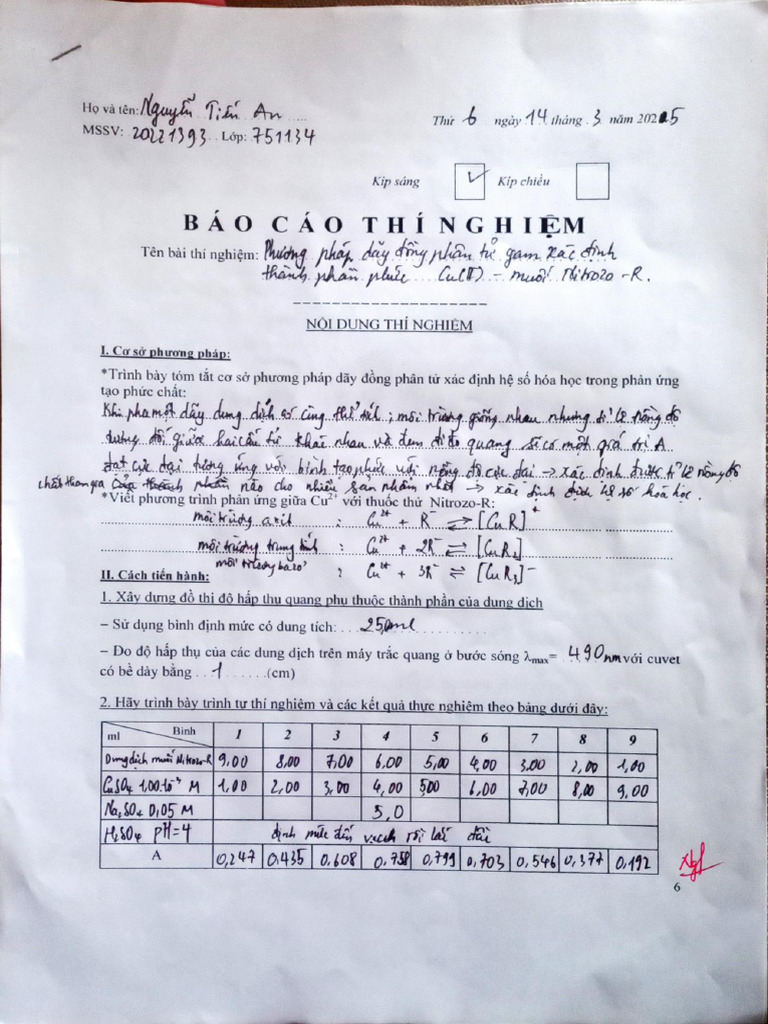 Họ và tên: Nguyễn Tiến An
Thứ 6 ngày 14 tháng 3 năm 2025
MSSV: 20221393 Lớp: 751134
Kíp sáng ✓ Kíp chiều
BÁO CÁO THÍ NGHIỆM
Tên bài thí nghiệm: Phương pháp dãy đồng phân tử gam xác định
thành phần phức Cu(II) - muối Nitrozo-R.
NỘI DUNG THÍ NGHIỆM
I. Cơ sở phương pháp:
*Trình bày tóm tắt cơ sở phương pháp dãy đồng phân tử xác định hệ số hóa học trong phản ứng
tạo phức chất:
Khi pha một dãy dung dịch có cùng thể tích, môi trường giống nhau nhưng tỉ lệ nồng độ
tương đối giữa hai cấu tử khác nhau và đem đi đo quang sẽ có một giá trị A
đạt cực đại tương ứng với bình tạo phức với nồng độ cực đại → xác định được tỉ lệ nồng độ
chất tham gia nào cho nhiều sản phẩm nhất → xác định được hệ số hóa học.
*Viết phương trình phản ứng giữa Cu²⁺ với thuốc thử Nitrozo-R:
môi trường axit : Cu²⁺ + R⁻ ⇌ [CuR]⁺
môi trường trung tính : Cu²⁺ + 2R⁻ ⇌ [CuR₂]
môi trường bazơ : Cu²⁺ + 3R⁻ ⇌ [CuR₃]⁻
II. Cách tiến hành:
1. Xây dựng đồ thị độ hấp thụ quang phụ thuộc thành phần của dung dịch
– Sử dụng bình định mức có dung tích: 25,0ml
– Đo độ hấp thụ của các dung dịch trên máy trắc quang ở bước sóng λmax= 490nm với cuvet
có bề dày bằng 1 (cm)
2. Hãy trình bày trình tự thí nghiệm và các kết quả thực nghiệm theo bảng dưới đây:
ml Bình 1 2 3 4 5 6 7 8 9
Dung dịch muối Nitrozo-R 9,00 8,00 7,00 6,00 5,00 4,00 3,00 2,00 1,00
CuSO₄ 1,00.10⁻³ M 1,00 2,00 3,00 4,00 5,00 6,00 7,00 8,00 9,00
Na₂SO₄ 0,05 M 5,0
H₂SO₄ pH=4 định mức đến vạch rồi lắc đều
A 0,247 0,435 0,608 0,758 0,799 0,703 0,546 0,377 0,192
6